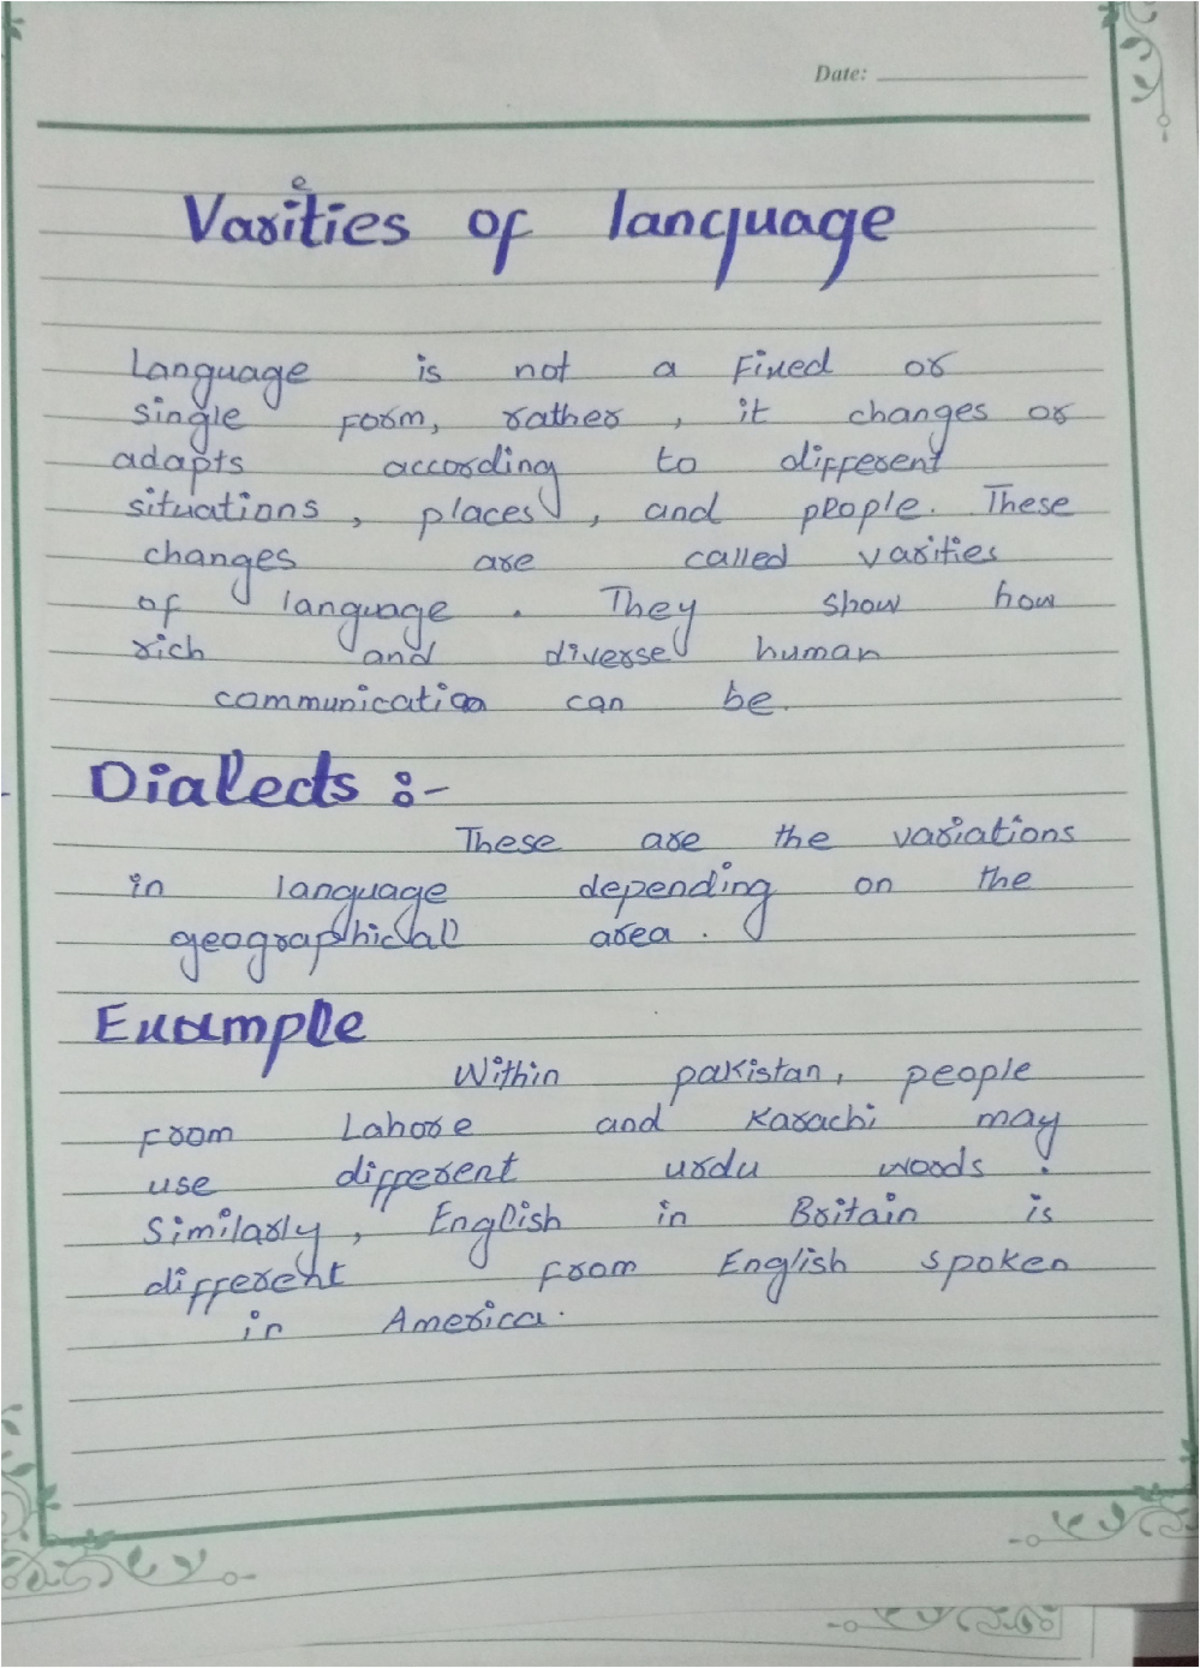 Date:
Varieties of language
Language is not a Fixed or
single Form, rather, it changes or
adapts according to different
situations, places, and people. These
changes are called varities
of language. They show how
rich and diverse human
communication can be.
Dialects :-
These are the variations
in language depending on the
geographical area.
Example
Within pakistan, people
From Lahore and Karachi may
use different urdu words.
Similarly, English in Britain is
different From English spoken
in America.